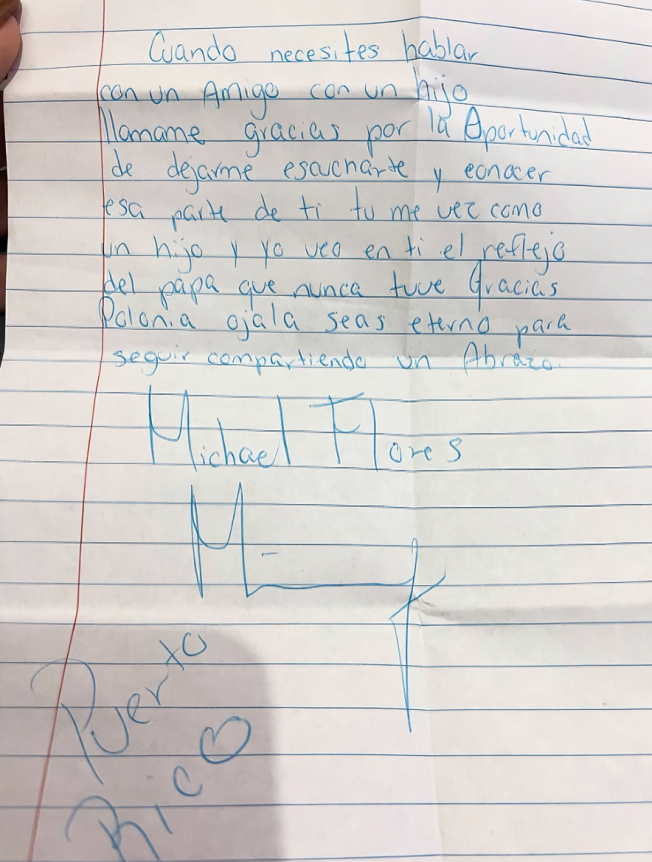 Cuando necesites hablar
con un Amigo con un hijo
llamame gracias por la Oportunidad
de dejarme esaucharte y conocer
esa parte de ti tu me vez como
un hijo y yo veo en ti el reflejo
del papa que nunca tuve Gracias
Polonia ojala seas eterno para
seguir compartiendo un Abrazo.
Michael Flores
Puerto
Rico